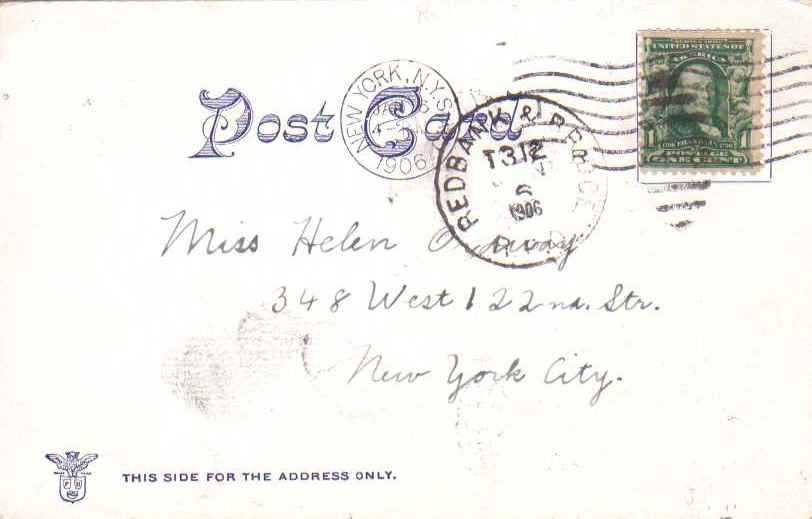 UNITED STATES OF
AMERICA
1 1
POSTAGE
ONE CENT
Post Card
NEW YORK, N.Y.
1906
REDBANK &
T312
6
1906
R.P.O.
Miss Helen
348 West 122nd. Str.
New York City.
THIS SIDE FOR THE ADDRESS ONLY.